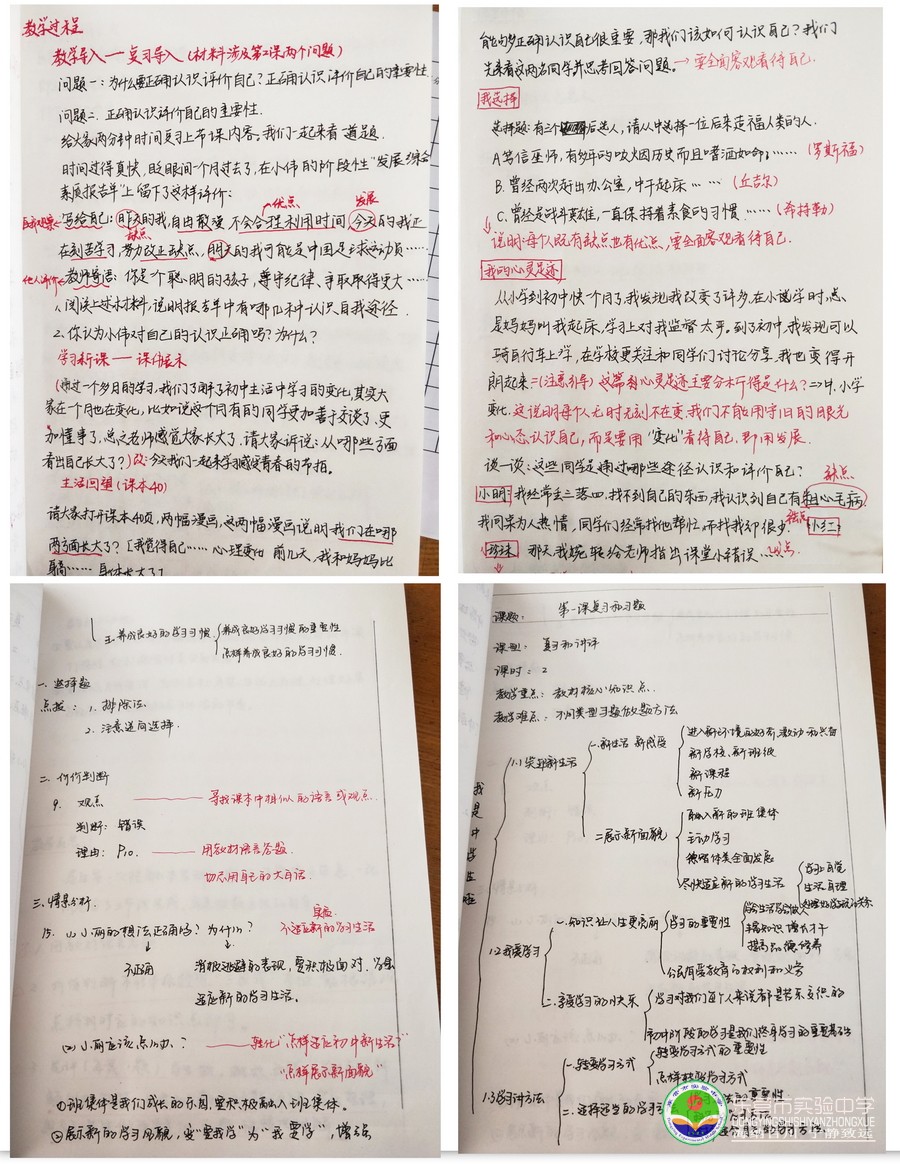 教学过程
教学导入一复习导入(材料涉及第2课两个问题)
问题一:为什么要正确认识评价自己?正确认识评价自己的重要性.
问题二.正确认识评价自己的重要性.
给大家两分钟时间复习上节课内容。我们一起来看一道题.
时间过得真快,眨眼间一个月过去了,在小伟的阶段性“发展综合
素质报告单”上留下了这样评价:
优点 发展
自我观察 写给自己:昨天的我,自由散强 不会合理利用时间,今天的我正
缺点
在刻苦学习,努力改正缺点、明天的我可能是中国足球运动员……
他人评价 教师寄语:你是个聪明的孩子,遵守纪律、争取取得更大……
1、阅读上述材料,说明报告单中有哪几种认识自我途径.
2、你认为小伟对自己的认识正确吗?为什么?
学习新课一课件展示
(通过一个多月的学习,我们了解了初中生活中学习的变化,其实大
家在个月也在变化,比如说这个月有的同学更加善于交谈了、更
加懂事了,总之老师感觉大家长大了,请大家诉说:从哪些方面
看出自己长大了?)改:今天我们一起来学习感受青春的节拍.
生活回望(课本40)
请大家打开课本40页,两幅漫画,这两幅漫画说明我们在哪
两方面长大了?[我觉得自己……心理变化 前几天,我和妈妈比
身高……身体长大了]
能够正确认识自己很重要,那我们该如何认识自己?我们
先来看这两名同学并思考回答问题.→要全面客观看待自己.
我选择
选择题:有三个候选人,请从中选择一位后来造福人类的人.
A.笃信巫师,有多年的吸烟历史而且嗜酒如命;……(罗斯福)
B.曾经两次赶出办公室,中午起床……(丘吉尔)
C.曾是战斗英雄,一直保持着素食的习惯……(希特勒)
说明:每个人既有缺点也有优点,要全面客观看待自己.
我的心灵足迹
从小学到初中快一个月了,我发现我改变了许多,在小学时,总
是妈妈叫我起床,学习上对我监督太严.到了初中,我发现可以
骑自行车上学,在学校更关注和同学们讨论分享,我也变得开
朗起来=(注意引导)这篇《心灵足迹》主要分析得是什么?⇒中.小学
变化,这说明每个人无时无刻不在变,我们不能用守旧的眼光
和心态认识自己,而是要用“变化”看待自己.即用发展.
谈一谈:这些同学是通过哪些途径认识和评价自己?
缺点
小明:我经常丢三落四,找不到自己的东西,我认识到自己有粗心毛病.
我同桌为人热情,同学们经常找他帮忙,而找我却很少 小红
那天我婉转给老师指出课堂小错误.优点
五.养成良好的学习习惯 养成良好学习习惯的重要性
怎样养成良好的学习习惯.
一.选择题
点拨:1.排除法
2.注意逆向选择.
二.价价判断
9. 观点——寻找课本中相似的语言或观点.
判断:错误
理由:P10.——用教材语言答题.
切忌用自己的大白话.
三、情景分析.
实质
15.(1)小丽的想法正确吗?为什么? 不适应新的学习生活
不正确 消极逃避的表现,要积极面对.学会
适应新的学习生活.
(2)小丽应该怎么办?——转化“怎样适应初中新生活?”
“怎样展示新面貌”
①班集体是我们成长的乐园,要积极融入班集体.
②展示新的学习风貌,变“要我学”为“我要学”,增强
课题: 第一课复习和习题
课型:复习和讲评
课时:2
教学重点:教材核心知识点.
教学难点:不同类型习题做题方法
我是中学生啦
1.1 走进新生活
一.新生活 新感受
进入新环境的好奇、激动和兴奋
新学校、新班级
新课程
新压力
二.展示新面貌
融入新的班集体
主动学习
德智体美全面发展
尽快适应新的学习生活
学习上自觉
生活自理
1.2我爱学习
一.知识让人生更亮丽
学习的重要性
掌握知识 增长才干
提高品德修养
公民有受教育的权利和义务
二.享受学习的快乐
学习对我们每个人来说都是苦乐交织的
初中阶段的学习是我们终身学习的重要基础
1.3学习讲方法
一.转变学习方式
转变学习方式的重要性
怎样转变学习方式
二.选择适当的学习方法
东营市实验中学
DONGYINGSHISHIYANZHONGXUE
宁静致远